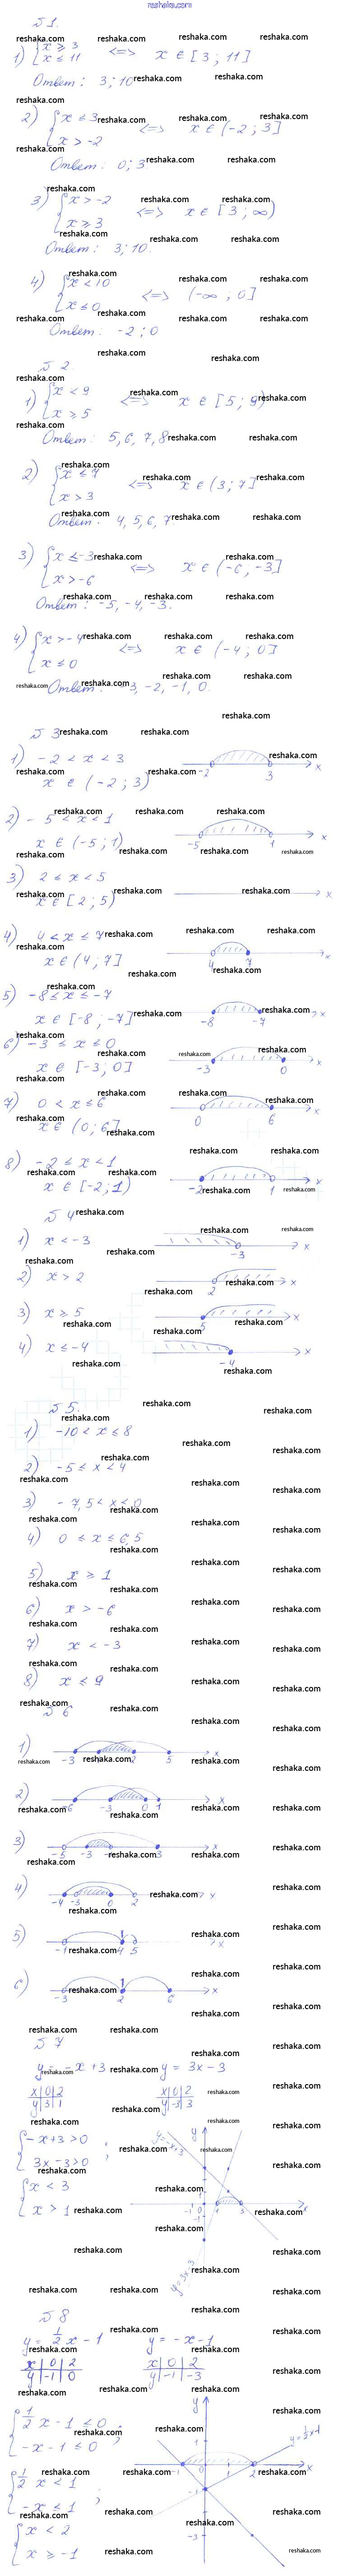 reshaka.com
№ 1.
1) { x ≥ 3
x ≤ 11 <=> x ∈ [3 ; 11]
Ответ: 3; 10
2) { x ≤ 3
x > -2 <=> x ∈ (-2 ; 3]
Ответ: 0; 3.
3) { x > -2
x ≥ 3 <=> x ∈ [3 ; ∞)
Ответ: 3; 10.
4) { x < 10
x ≤ 0 <=> (-∞ ; 0]
Ответ: -2 ; 0
№ 2.
1) { x < 9
x ≥ 5 <=> x ∈ [5 ; 9)
Ответ: 5, 6, 7, 8
2) { x ≤ 7
x > 3 <=> x ∈ (3 ; 7]
Ответ: 4, 5, 6, 7.
3) { x ≤ -3
x > -6 <=> x ∈ (-6 , -3]
Ответ: -5, -4, -3.
4) { x > -4
x ≤ 0 <=> x ∈ (-4 ; 0]
Ответ: -3, -2, -1, 0.
№ 3
1) -2 < x < 3
x ∈ (-2 ; 3)
-2 3 x
2) -5 < x < 1
x ∈ (-5 ; 1)
-5 1 x
3) 2 ≤ x < 5
x ∈ [2 ; 5)
x
4) 4 < x ≤ 7
x ∈ (4 ; 7]
4 7 x
5) -8 ≤ x ≤ -7
x ∈ [-8 ; -7]
-8 -7 x
6) -3 ≤ x ≤ 0
x ∈ [-3 ; 0]
-3 0 x
7) 0 < x ≤ 6
x ∈ (0 ; 6]
0 6 x
8) -2 ≤ x < 1
x ∈ [-2 ; 1)
-2 1 x
№ 4
1) x < -3
-3 x
2) x > 2
2 x
3) x ≥ 5
5 x
4) x ≤ -4
-4 x
№ 5.
1) -10 < x ≤ 8
2) -5 ≤ x < 4
3) -7,5 < x < 0
4) 0 ≤ x ≤ 6,5
5) x ≥ 1
6) x > -6
7) x < -3
8) x ≤ 9
№ 6
1) -3 2 5 x
2) -6 -3 0 1 x
3) -5 -3 3 x
4) -4 -3 0 2 x
5) -1 4 5 x
6) -3 2 6 x
№ 7
y = -x + 3 y = 3x - 3
x 0 2 x 0 2
y 3 1 y -3 3
{ -x + 3 > 0
3x - 3 > 0 ;
{ x < 3
x > 1
y y = -x+3
-1 0 1 3 x
y = 3x-3
№ 8
y = 1/2 x - 1 y = -x - 1
x 0 2 x 0 2
y -1 0 y -1 -3
{ 1/2 x - 1 ≤ 0
-x - 1 ≤ 0 ;
{ 1/2 x < 1
-x ≤ 1 ;
{ x < 2
x ≥ -1
y
1
y = 1/2 x-1
-1 0 1 2 x
-1
-3